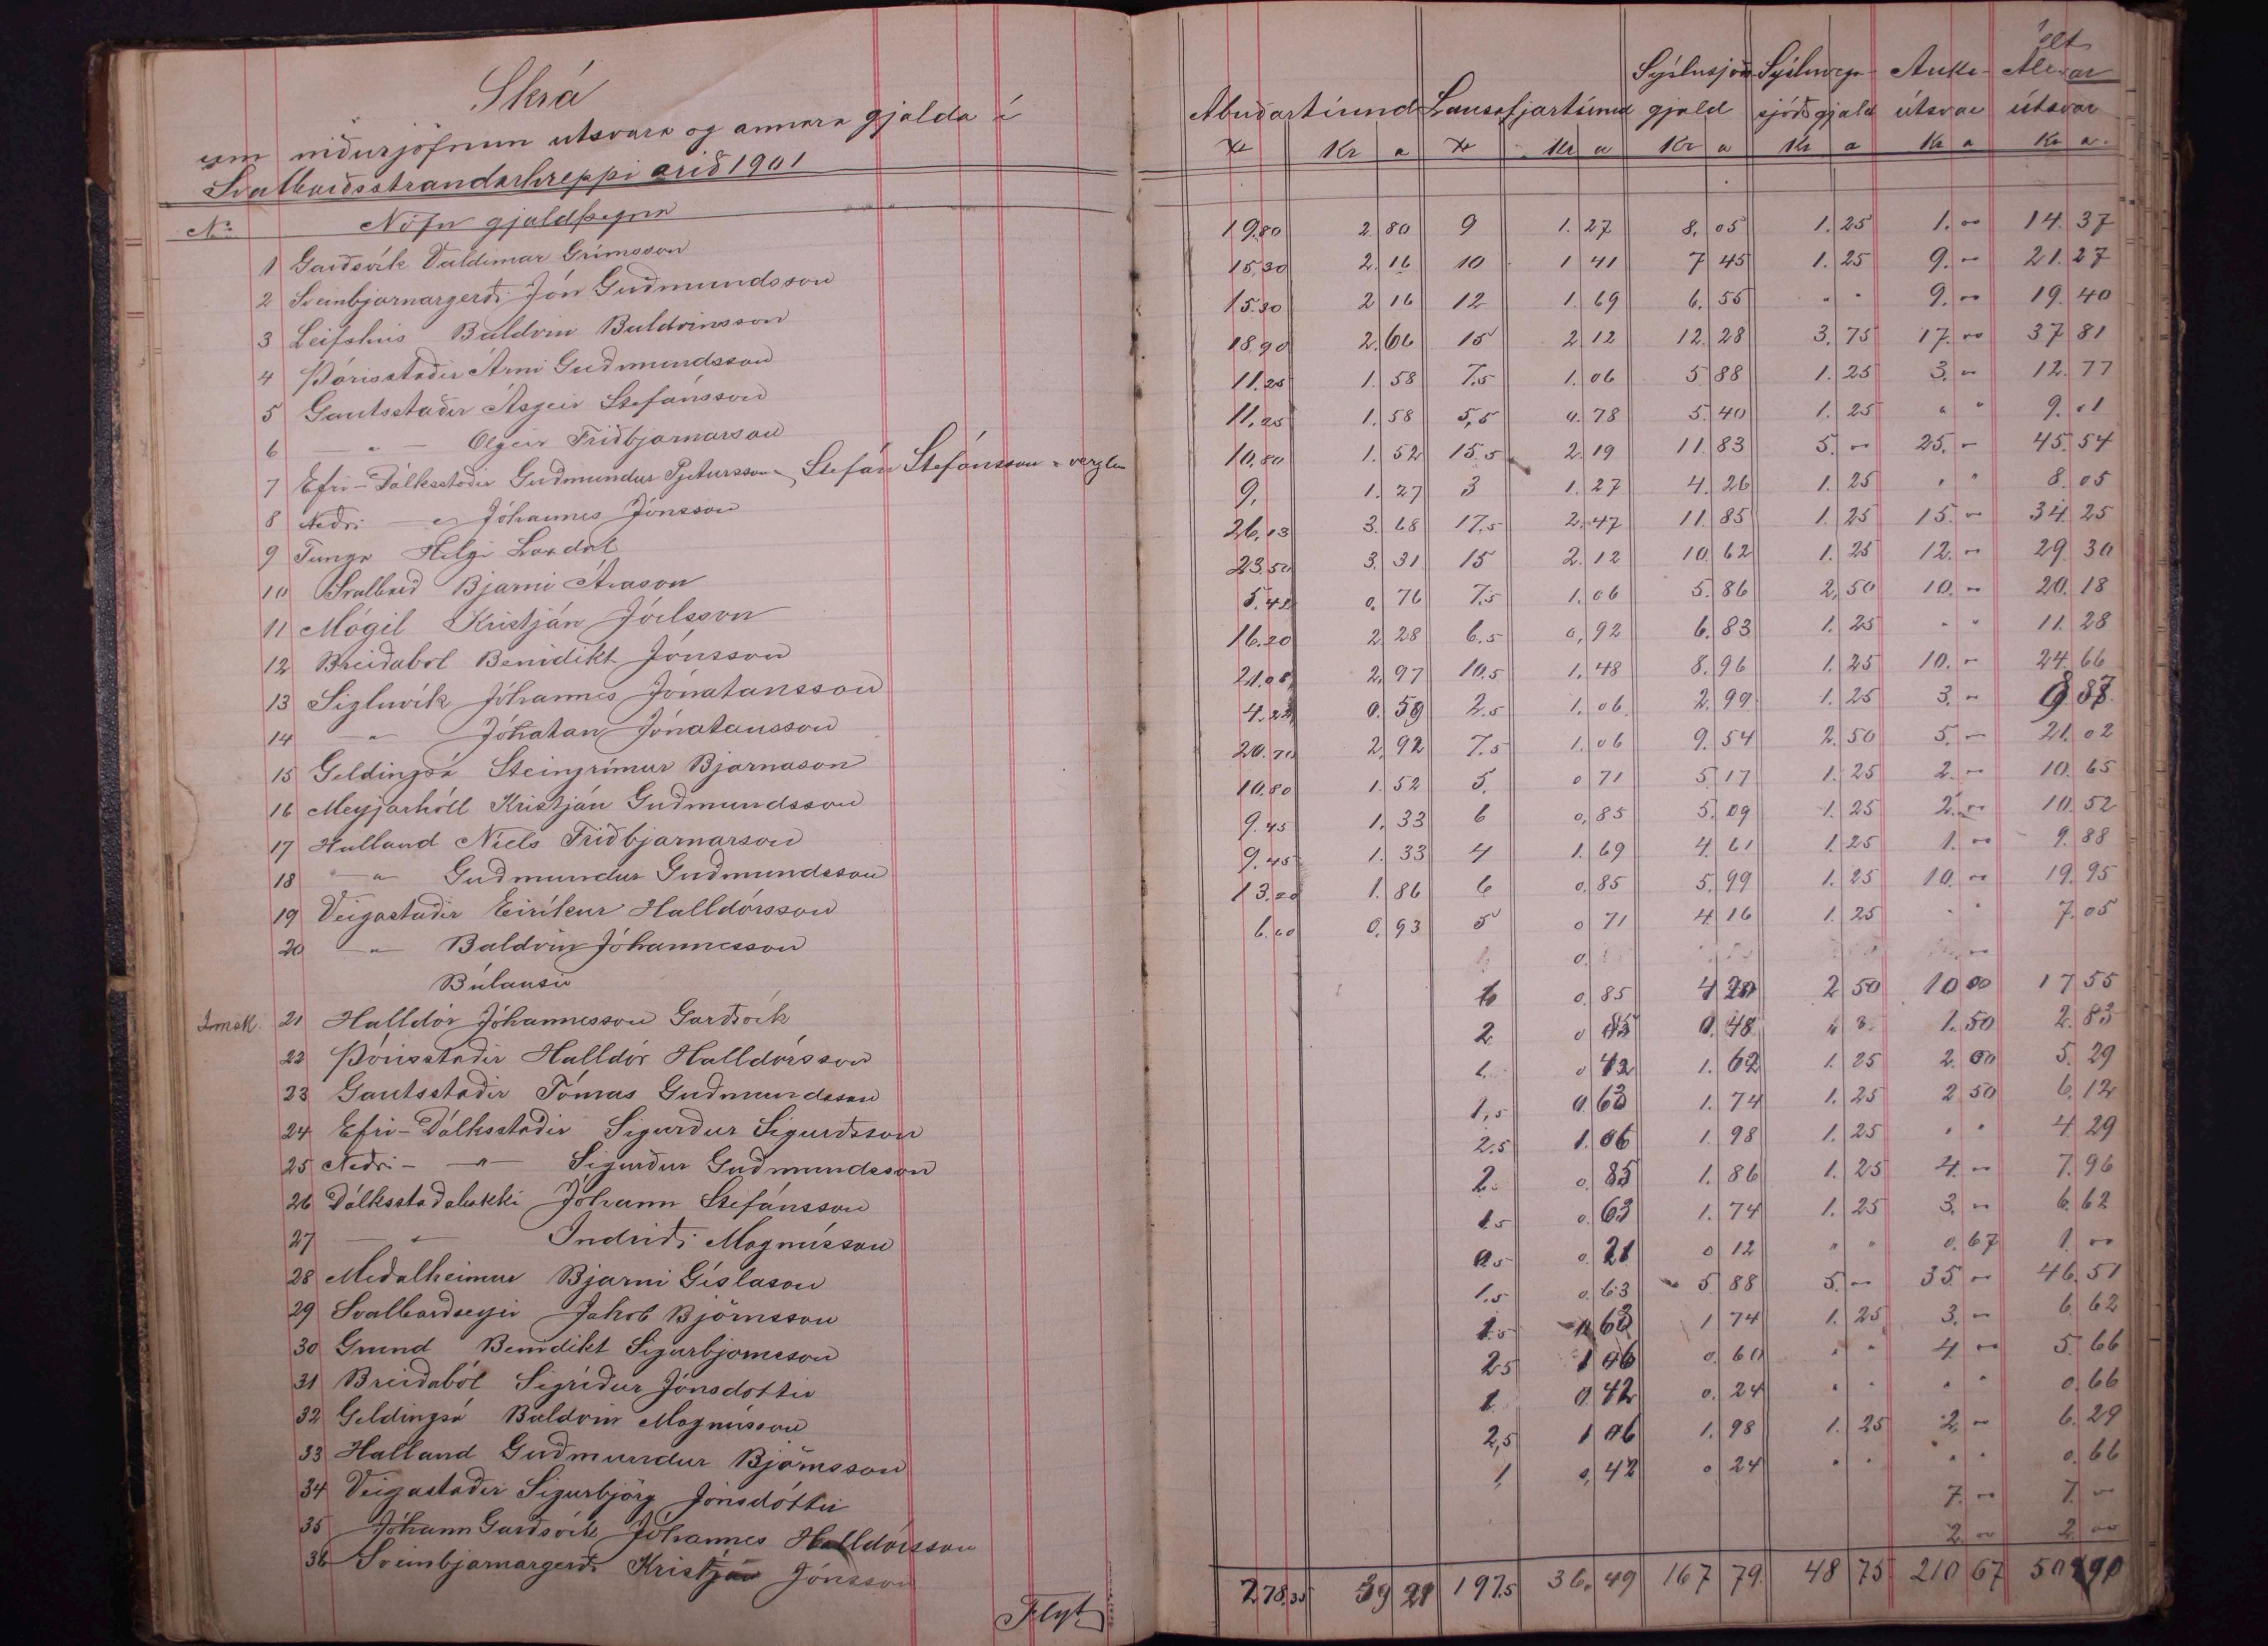 Skrá
um niðurjöfnun utsvara og annara gjalda í
Svalbarðsstrandarhreppi árið 1901
No Nöfn gjaldþegna
Abúðartíund Lausafjartíund Sýslusjóðs gjald Sýsluvega sjóðsgjald Auka útsvar útsvar
Kr a Kr a Kr a Kr a Kr a Kr a.
1 Garðsvík Valdimar Grímsson 19.80 2.80 9 1.27 8.05 1.25 1.00 14.37
2 Sveinbjarnargerði Jón Guðmundsson 15.30 2.16 10 1 41 7 45 1.25 9.- 21.27
3 Leifshús Baldvin Baldvinsson 15.30 2 16 12 1.69 6.55 " " 9.00 19.40
4 Þórisstaðir Árni Guðmundsson 18.90 2.66 15 2 12 12 28 3.75 17.00 37 81
5 Gautsstaðir Ásgeir Stefánsson 11.25 1.58 7.5 1.06 5 88 1.25 3.- 12.77
6 — " — Olgeir Friðbjarnarson 11.25 1.58 5,5 0.78 5.40 1.25 " " 9.01
7 Efri-Dálksstaðir Guðmundur Pjetursson Stefán Stefánsson 10,80 1.52 15.5 2.19 11.83 5.- 25.- 45.54
8 Neðri — " Jóhannes Jónsson 9, 1.27 3 1.27 4.26 1.25 " " 8.05
9 Tunga Helgi Laxdal 26,13 3.68 17.5 2.47 11.85 1.25 15.- 34 25
10 Svalbarð Bjarni Árason 23.50 3.31 15 2.12 10 62 1.25 12.- 29 30
11 Mógil Kristján Jóelsson 5.42 0.76 7.5 1.06 5.86 2,50 10.- 20.18
12 Breiðabol Benidikt Jónsson 16.20 2 28 6.5 0,92 6.83 1.25 " " 11.28
13 Sigluvík Jóhannes Jónatansson 21.08 2,97 10.5 1,48 8.96 1.25 10.- 24 66
14 — " — Jóhatan Jónatansson 4.22 0.59 2.5 1.06 2.99 1.25 3.-
15 Geldingsá Steingrímur Bjarnason 20.70 2,92 7.5 1.06 9.54 2.50 5.- 21.02
16 Meyjarhóll Kristján Guðmundsson 10.80 1.52 5. 0 71 5.17 1.25 2.- 10.65
17 Halland Níels Friðbjarnarson 9.45 1,33 6 0,85 5.09 1.25 2.00 10.52
18 — " — Guðmundur Guðmundsson 9.45 1.33 4 1.69 4.61 1.25 1.00 9.88
19 Veigastaðir Eiríkur Halldórsson 13.20 1.86 6 0.85 5.99 1.25 10.00 19.95
20 — " — Baldvin Jóhannesson 6.60 0.93 5 0 71 4 16 1.25 " " 7.05
Búlausir
21 Halldór Jóhannesson Garðsvík 0.85 4 20 2 50 10 00 17 55
22 Þórisstaðir Halldór Halldórsson 2 0 85 0.48 1.50 2.83
23 Gautsstaðir Tómas Guðmundsson 1. 0 42 1.62 1.25 2.00 5.29
24 Efri-Dálksstaðir Sigurður Sigurðsson 1,5 0.63 1.74 1.25 2 50 6.12
25 Neðri- — " — Sigurður Guðmundsson 2.5 1.06 1.98 1.25 " " 4 29
26 Dálksstaðabakki Jóhann Stefánsson 2. 0.85 1.86 1.25 4.- 7.96
27 — " — Indriði Magnússon 1.5 0.63 1.74 1.25 3.- 6.62
28 Meðalheimur Bjarni Gíslason 0.5 0.21 0 12 " " 0.67 1.00
29 Svalbarðseyri Jakob Björnsson 1.5 0.63 5.88 5.- 35.- 46.51
30 Grund Benidikt Sigurbjörnsson 1.5 0 63 1 74 1.25 3.- 6.62
31 Breiðaból Sigríður Jónsdóttir 2.5 1 06 0.60 " " 4.- 5.66
32 Geldingsá Baldvin Magnússon 1. 0.42 0.24 " " " " 0.66
33 Halland Guðmundur Björnsson 2,5 1 06 1.98 1.25 2.- 6.29
34 Veigastaðir Sigurbjörg Jónsdóttir 1, 0,42 0 24 " " " " 0.66
35 Jóhann Garðsvík Jóhannes Halldórsson 7.- 7.-
36 Sveinbjarnargerði Kristján Jónsson 2.00 2.00
Flyt. 278.35 39 21 197.5 36.49 167 79. 48 75 210 67